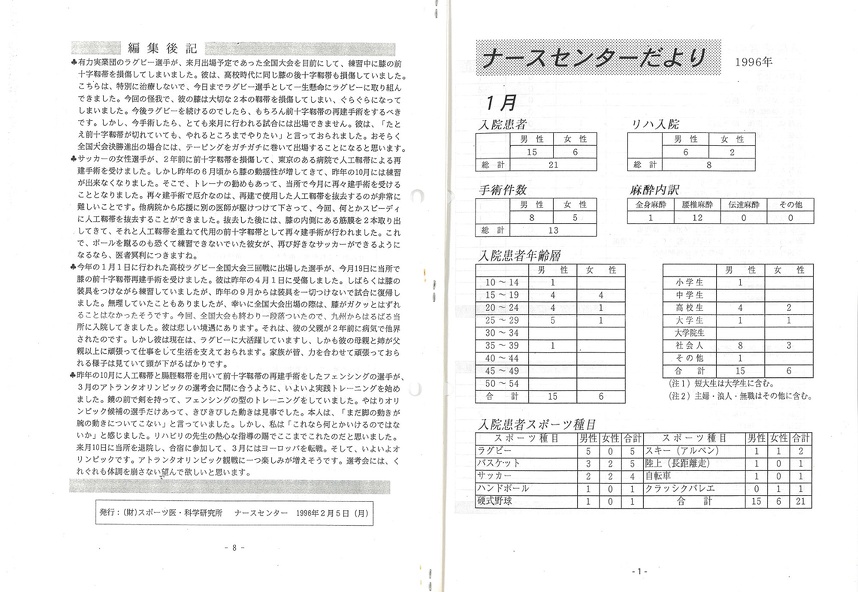 編集後記
♣有力実業団のラグビー選手が、来月出場予定であった全国大会を目前にして、練習中に膝の前
十字靱帯を損傷してしまいました。彼は、高校時代に同じ膝の後十字靱帯も損傷していました。
こちらは、特別に治療しないで、今日までラグビー選手として一生懸命にラグビーに取り組ん
できました。今回の怪我で、彼の膝は大切な2本の靱帯を損傷してしまい、ぐらぐらになって
しまいました。今後ラグビーを続けるのでしたら、もちろん前十字靱帯の再建手術をするべき
です。しかし、今手術したら、とても来月に行われる試合には出場できません。彼は、「たと
え前十字靱帯が切れていても、やれるところまでやりたい」と言っておられました。おそらく
全国大会決勝進出の場合には、テーピングをガチガチに巻いて出場することになると思います。
♣サッカーの女性選手が、2年前に前十字靱帯を損傷して、東京のある病院で人工靱帯による再
建手術を受けました。しかし昨年の6月頃から膝の動揺性が増してきて、昨年の10月には練習
が出来なくなりました。そこで、トレーナの勧めもあって、当所で今月に再々手術を受ける
こととなりました。再々建手術で厄介なのは、再建で使用した人工靱帯を抜去するのが非常に
難しいことです。他病院から応援に別の医師が駆けつけて下さって、今回、何とかスピーディ
に人工靱帯を抜去することができました。抜去した後には、膝の内側にある筋腱を2本取り出
してきて、それと人工靱帯を重ねて代用の前十字靱帯として再々建手術が行われました。これ
で、ボールを蹴るのも恐くて練習できないでいた彼女が、再び好きなサッカーができるように
なるなら、医者冥利につきますね。
♣今年の1月1日に行われた高校ラグビー全国大会三回戦に出場した選手が、今月19日に当所で
膝の前十字靱帯再建手術を受けました。彼は昨年の4月1日に受傷しました。しばらくは膝の
装具をつけながら練習していましたが、昨年の9月からは装具を一切つけないで試合に復帰し
ました。無理していたこともありましたが、幸いに全国大会出場の際は、膝がガクッとはずれ
ることはなかったそうです。今回、全国大会も終わり一段落ついたので、九州からはるばる当
所に入院してきました。彼は悲しい境遇にあります。それは、彼の父親が2年前に病気で他界
されたのです。しかし彼は現在は、ラグビーに大活躍していますし、しかも彼の母親と姉が父
親以上に頑張って仕事をして生活を支えておられます。家族が皆、力を合わせて頑張っておら
れる様子は見ていて頭が下がるばかりです。
♣昨年の10月に人工靱帯と腸脛靱帯を用いて前十字靱帯の再建手術をしたフェンシングの選手が、
3月のアトランタオリンピックの選考会に間に合うように、いよいよ実践トレーニングを始め
ました。鏡の前で剣を持って、フェンシングの型のトレーニングをしていました。やはりオリ
ンピック候補の選手だけあって、きびきびした動きは見事でした。本人は、「まだ脚の動きが
腕の動きについてこない」と言っていました。しかし、私は「これなら何とかいけるのではな
いか」と感じました。リハビリの先生の熱心な指導の賜でここまでこれたのだと思いました。
来月10日に当所を退院し、合宿に参加して、3月にはヨーロッパを転戦。そして、いよいよオ
リンピックです。アトランタオリンピック観戦に一つ楽しみが増えそうです。選考会には、く
れぐれも体調を崩さない望んで欲しいと思います。
発行：(財)スポーツ医・科学研究所 ナースセンター 1996年2月5日(月)
- 8 -
ナースセンターだより 1996年
1月
入院患者
男性 女性
15 6
総計 21
リハ入院
男性 女性
6 2
総計 8
手術件数
男性 女性
8 5
総計 13
麻酔内訳
全身麻酔 腰椎麻酔 伝達麻酔 その他
1 12 0 0
入院患者年齢層
男性 女性
10～14 1
15～19 4 4
20～24 4 1
25～29 5 1
30～34
35～39 1
40～44
45～49
50～54
合計 15 6
男性 女性
小学生 1
中学生
高校生 4 2
大学生 1 1
大学院生
社会人 8 3
その他 1
合計 15 6
(注1) 短大生は大学生に含む。
(注2) 主婦・浪人・無職はその他に含む。
入院患者スポーツ種目
スポーツ種目 男性 女性 合計 スポーツ種目 男性 女性 合計
ラグビー 5 0 5 スキー(アルペン) 1 1 2
バスケット 3 2 5 陸上(長距離走) 1 0 1
サッカー 2 2 4 自転車 1 0 1
ハンドボール 1 0 1 クラッシクバレエ 0 1 1
硬式野球 1 0 1 合計 15 6 21
- 1 -